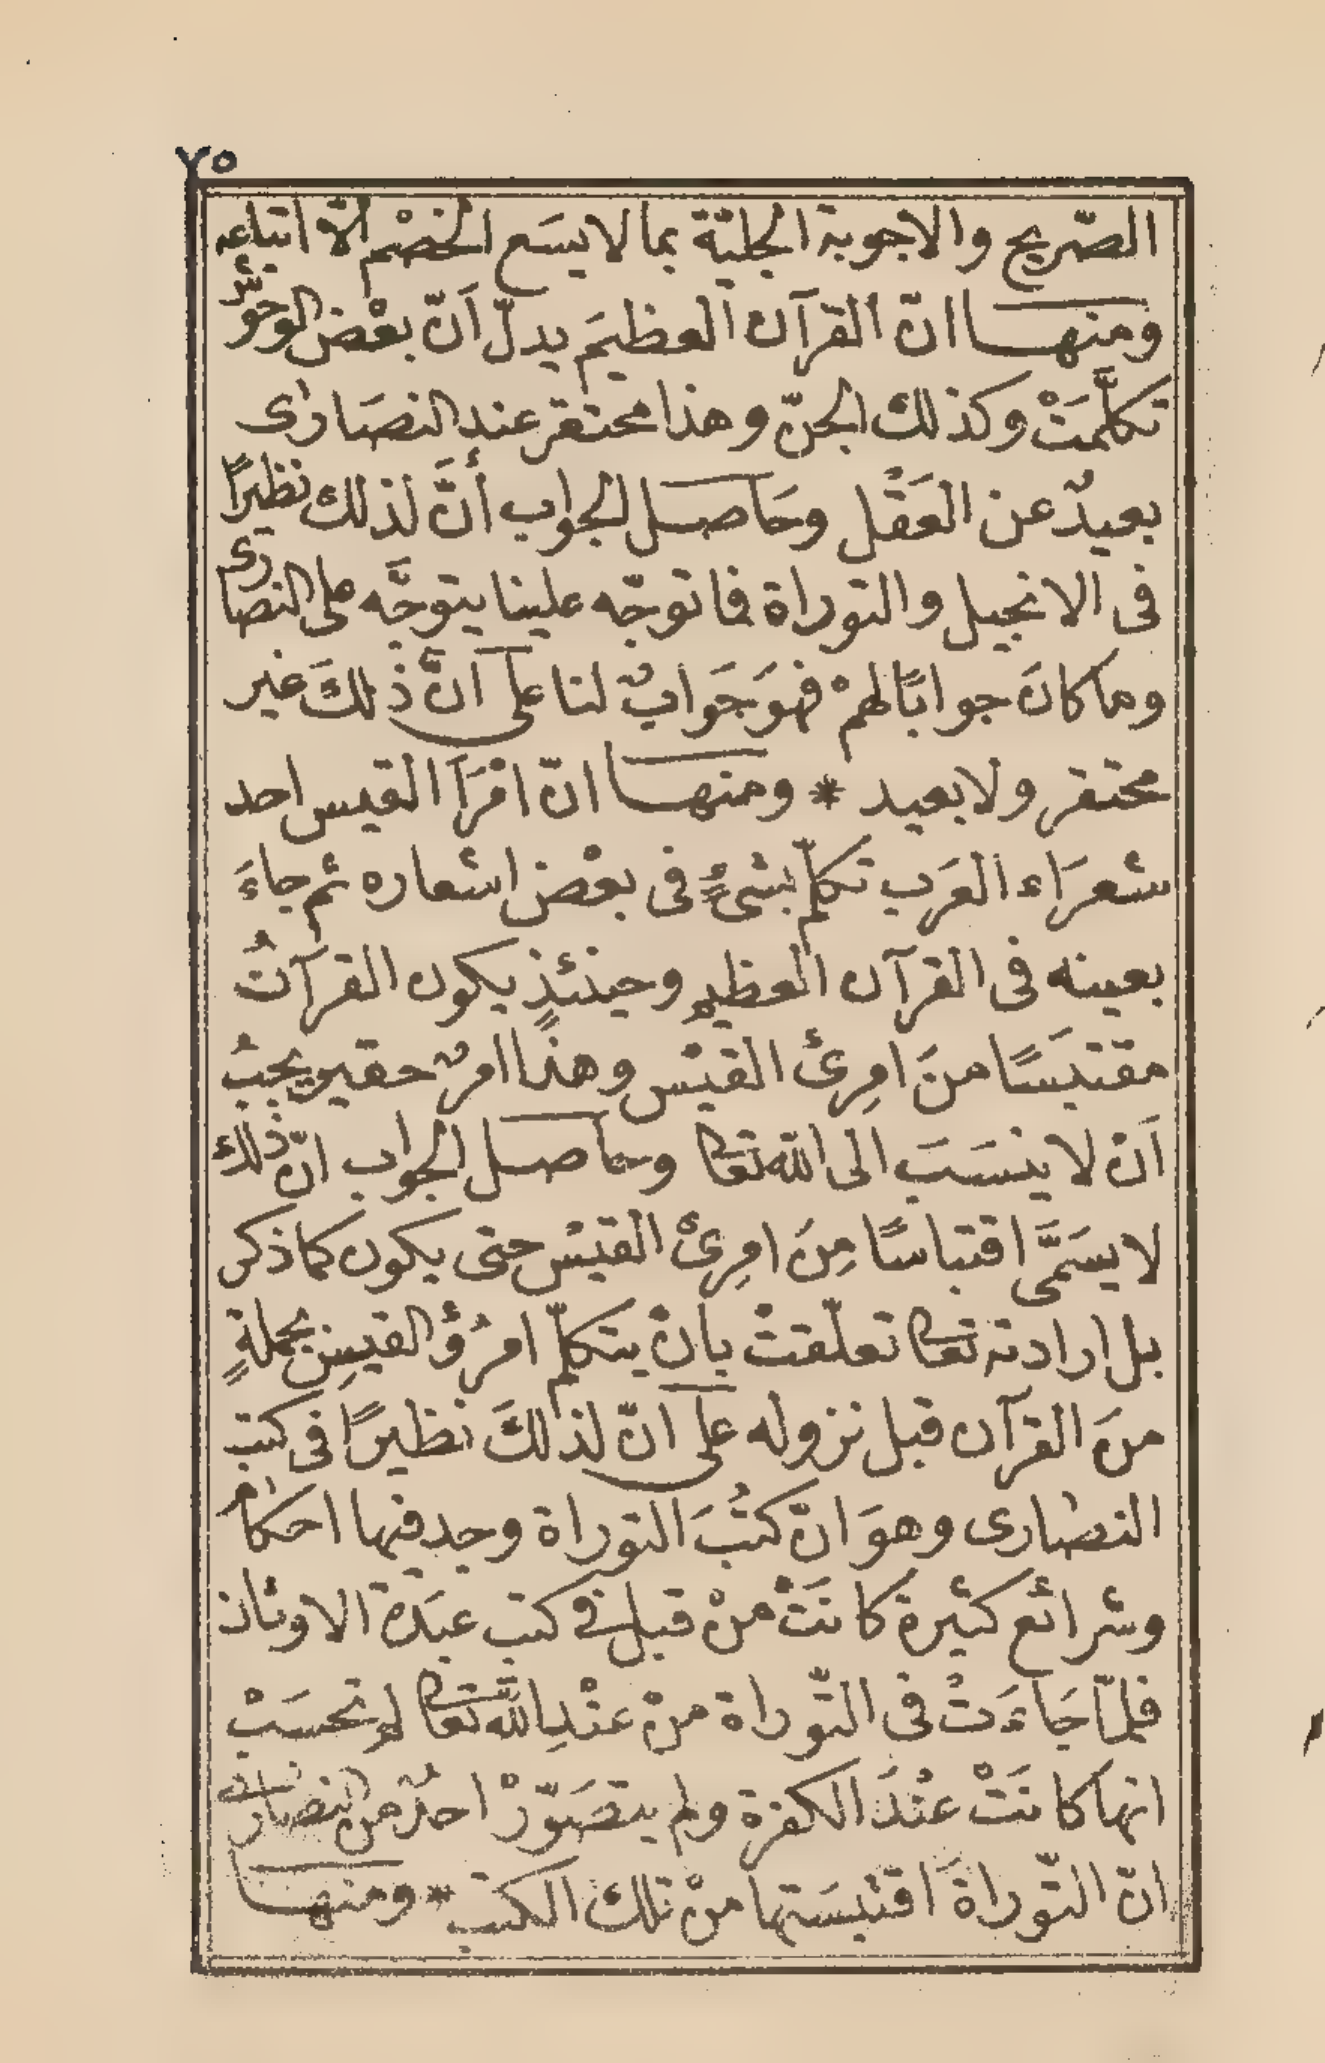 ٢٥
الصّريح والاجوبة الجليّة بما لا يسَع الخصْم الّا اتباعه
ومنهـا انّ القرآن العظيمَ يدلّ اَنّ بعْض الوحوش
تكلَّمَتْ وكذلك الجنّ وهذا محتقر عند النصَارى
بعيدٌ عن العَقْل وحَاصـل الجواب أنَّ لذلك نظيرًا
فى الانجيل والتوراة فما توجّه علينا يتوجَّه على النصارى
وما كانَ جوابًا لهمْ فهوَ جَوابٌ لنا على انَّ ذلكَ غير
محتقر ولا بعيد * ومنهـا انّ امْرَأَ القيس احد
شعرَاء العرَب تكلّم بشئٍ فى بعْض اشعاره ثم جاءَ
بعينه فى القرآن العظيم وحينئذٍ يكون القرآنُ
مقتبَسًا منَ امرِئ القيْس وهذا امرٌ حقير يجبُ
اَنْ لا ينسَبَ الى الله تعالى وحاصـل الجواب انّ ذلك
لا يسَمَّى اقتباسًا مِنَ امرِئ القيْس حتى يكون كما ذكر
بل ارادته تعالى تعلّقتْ بانْ يتكلّم امرُؤ القيسِ بجملةٍ
منَ القرآن قبل نزوله على انّ لذلكَ نظيرًا فى كتب
النصارى وهوَ انّ كتُبَ التوراة وجد فيها احكام
وشرائع كثيرة كانَتْ منْ قبل فى كتب عبَدة الاوثان
فلمّا جَاءَتْ فى التّوراة منْ عنْدِ الله تعالى لم تحسَبْ
انها كانَتْ عنْدَ الكفرة ولم يتصَوّرْ احدٌ من النصارى
انّ التّوراةَ اقتبسَتها منْ تلك الكتب * ومنهـا